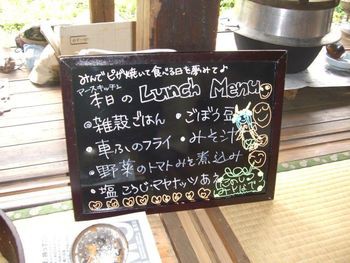 みんでピザ焼いて食べる日を夢みてよ
アースキッチン
本日の Lunch Menu
・雑穀ごはん ・ごぼう豆
・車ふのフライ ・みそ汁
・野菜のトマトみそ煮込み
・塩こうじ・マヤナッツあえ